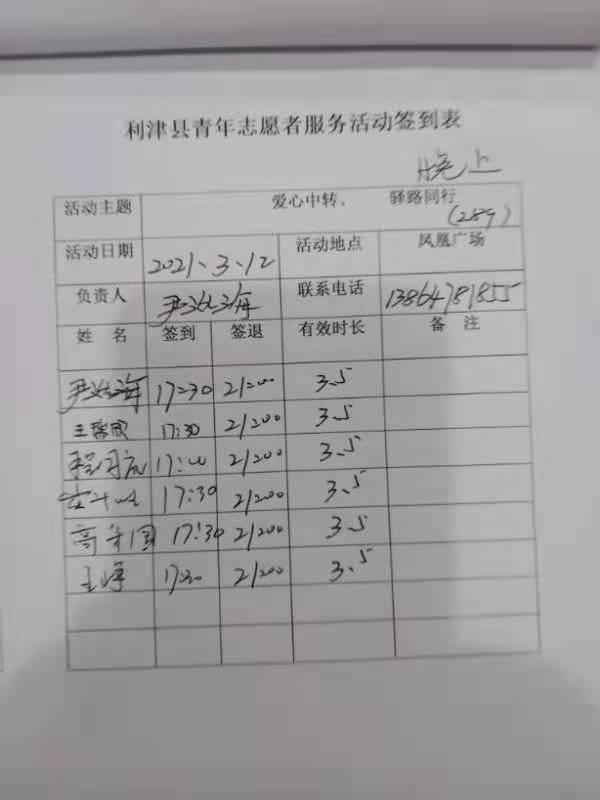 利津县青年志愿者服务活动签到表
晚上
活动主题 爱心中转、 驿路同行
(289)
活动日期 2021、3、12 活动地点 凤凰广场
负责人 联系电话 13864781855
姓名 签到 签退 有效时长 备注
17:30 21:00 3.5
17:30 21:00 3.5
21:00 3.5
17:30 21:00 3.5
17:30 21:00 3.5
21:00 3.5